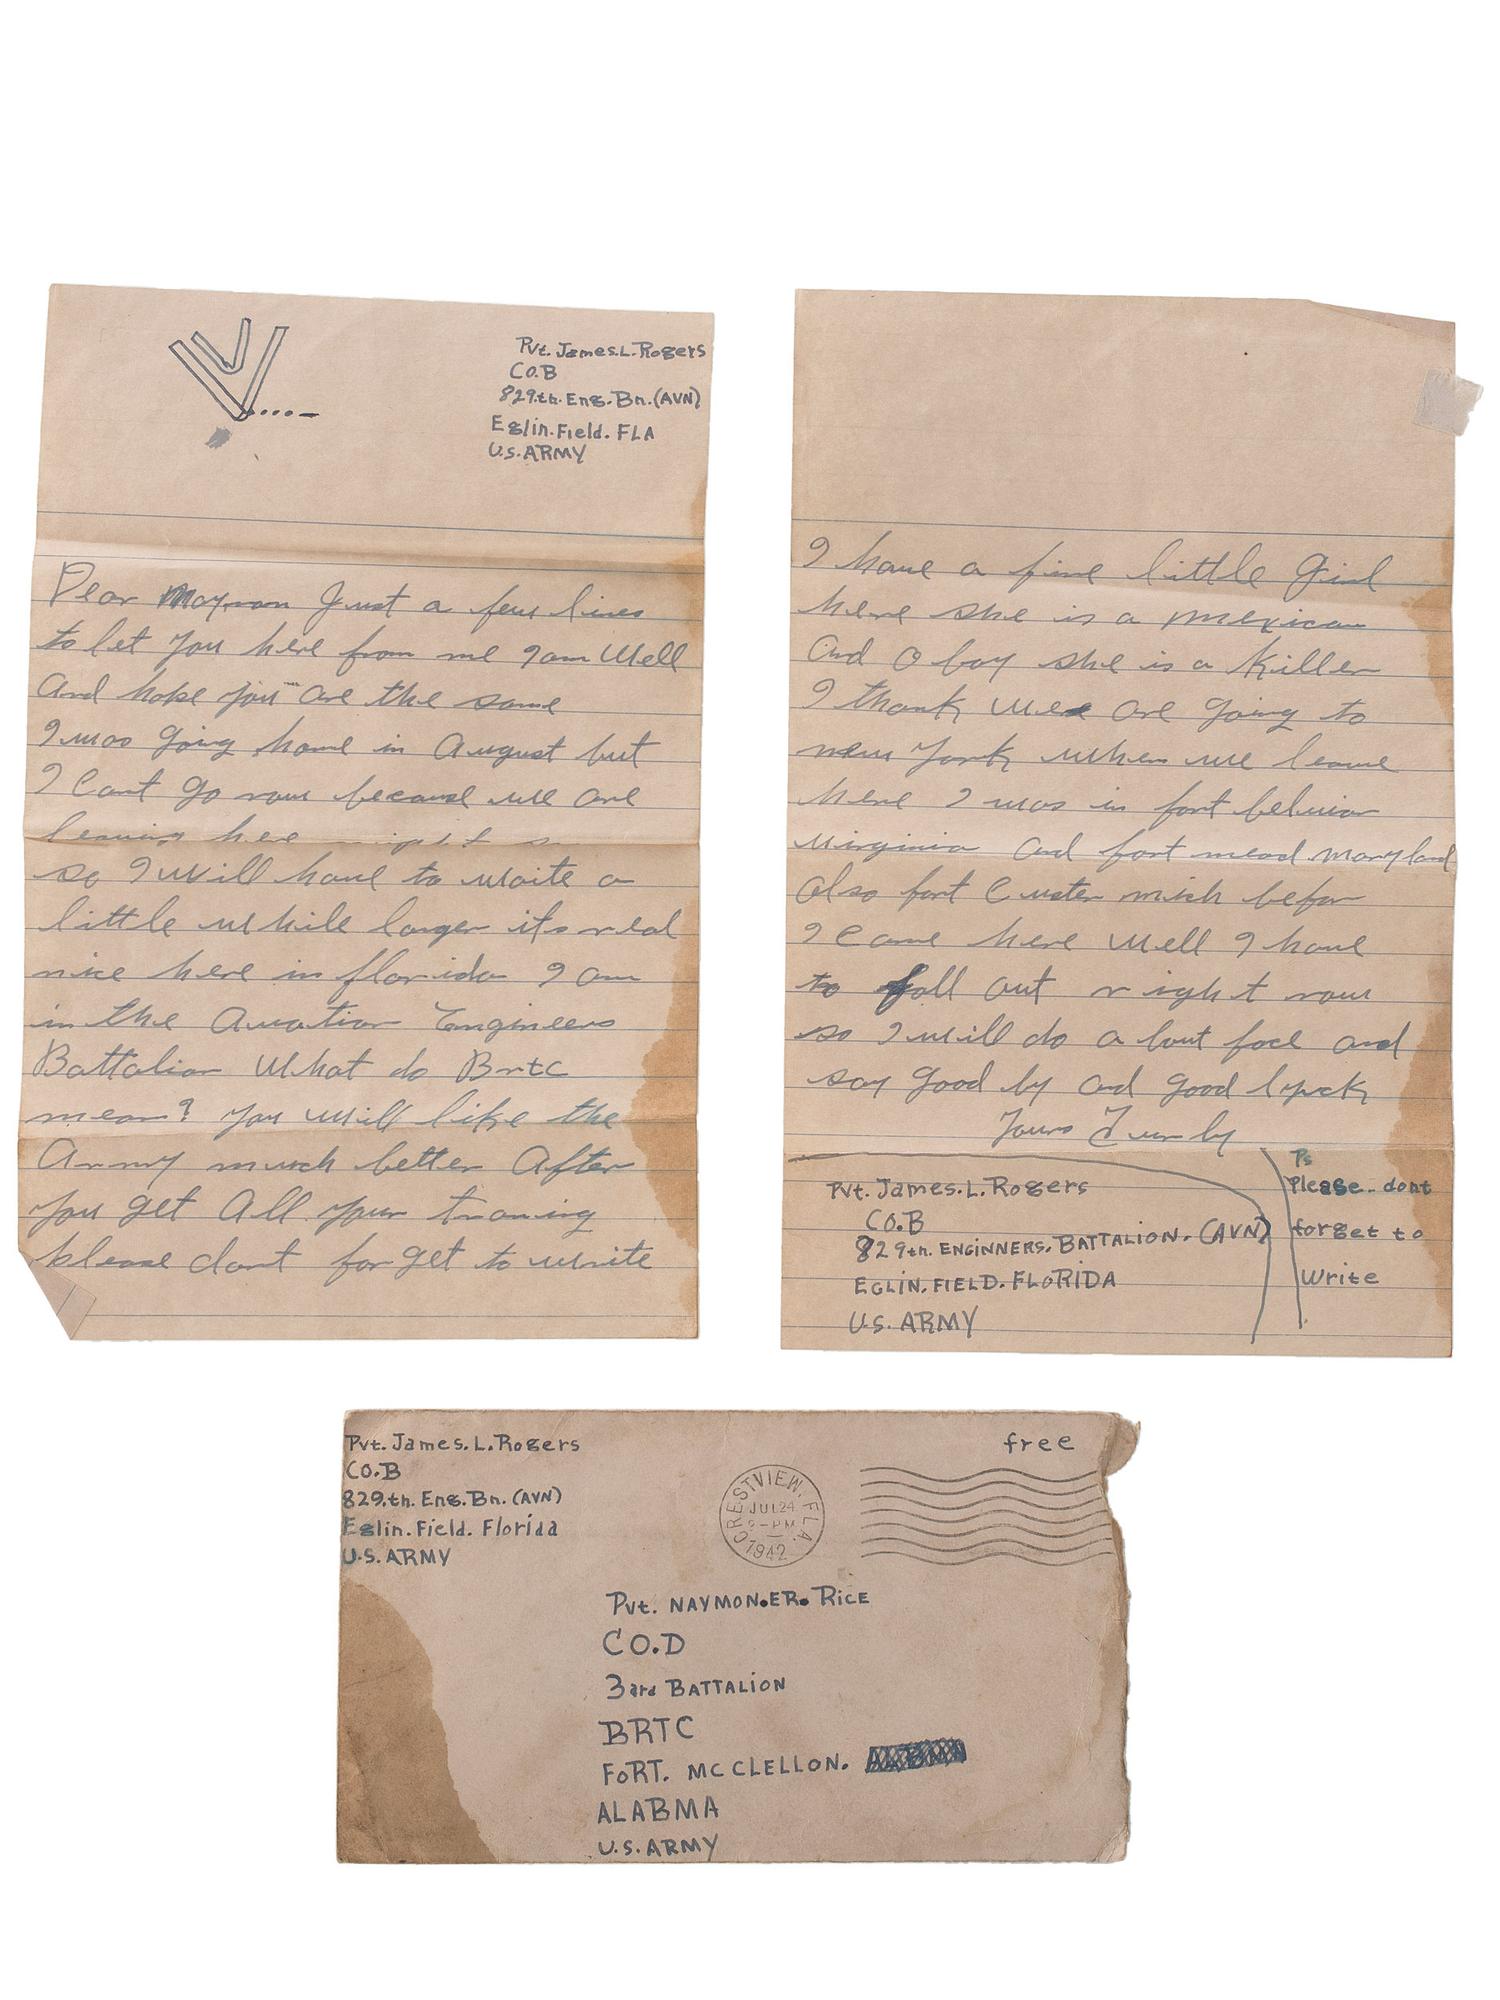 Pvt. James.L.Rogers
CO.B
829.th. Eng. Bn. (AVN)
Eglin. Field. FLA
U.S. ARMY
Dear Naymon Just a few lines
to let you here from me I am Well
And hope you are the same
I was going home in August but
I Cant go now because we are
leaving here
so I will have to waite a
little while longer its real
nice here in florida I am
in the Avation Engineers
Battalion What do Brtc
mean? you will like the
Army much better After
you get All your traning
please dont forget to write
I have a fine little Girl
here she is a mexican
And O boy she is a Killer
I thank we are going to
new York when we leave
here I was in fort belvior
virginia And fort mead maryland
Also fort Custer mich befor
I Came here Well I have
to fall out right now
so I will do a bout face and
say good by and good luck
Yours Truly
Pvt. James.L.Rogers
CO.B
829th. ENGINNERS. BATTALION. (AVN)
EGLIN. FIELD. FLORIDA
U.S. ARMY
Ps
Please dont
forget to
Write
Pvt. James. L. Rogers
CO.B
829.th. Eng. Bn. (AVN)
Eglin. Field. Florida
U.S. ARMY
free
CRESTVIEW, FLA.
JUL 24
PM
1942
Pvt. NAYMON.ER. RiCE
CO.D
3ard BATTALION
BRTC
FORT. MCCLELLON.
ALABMA
U.S. ARMY